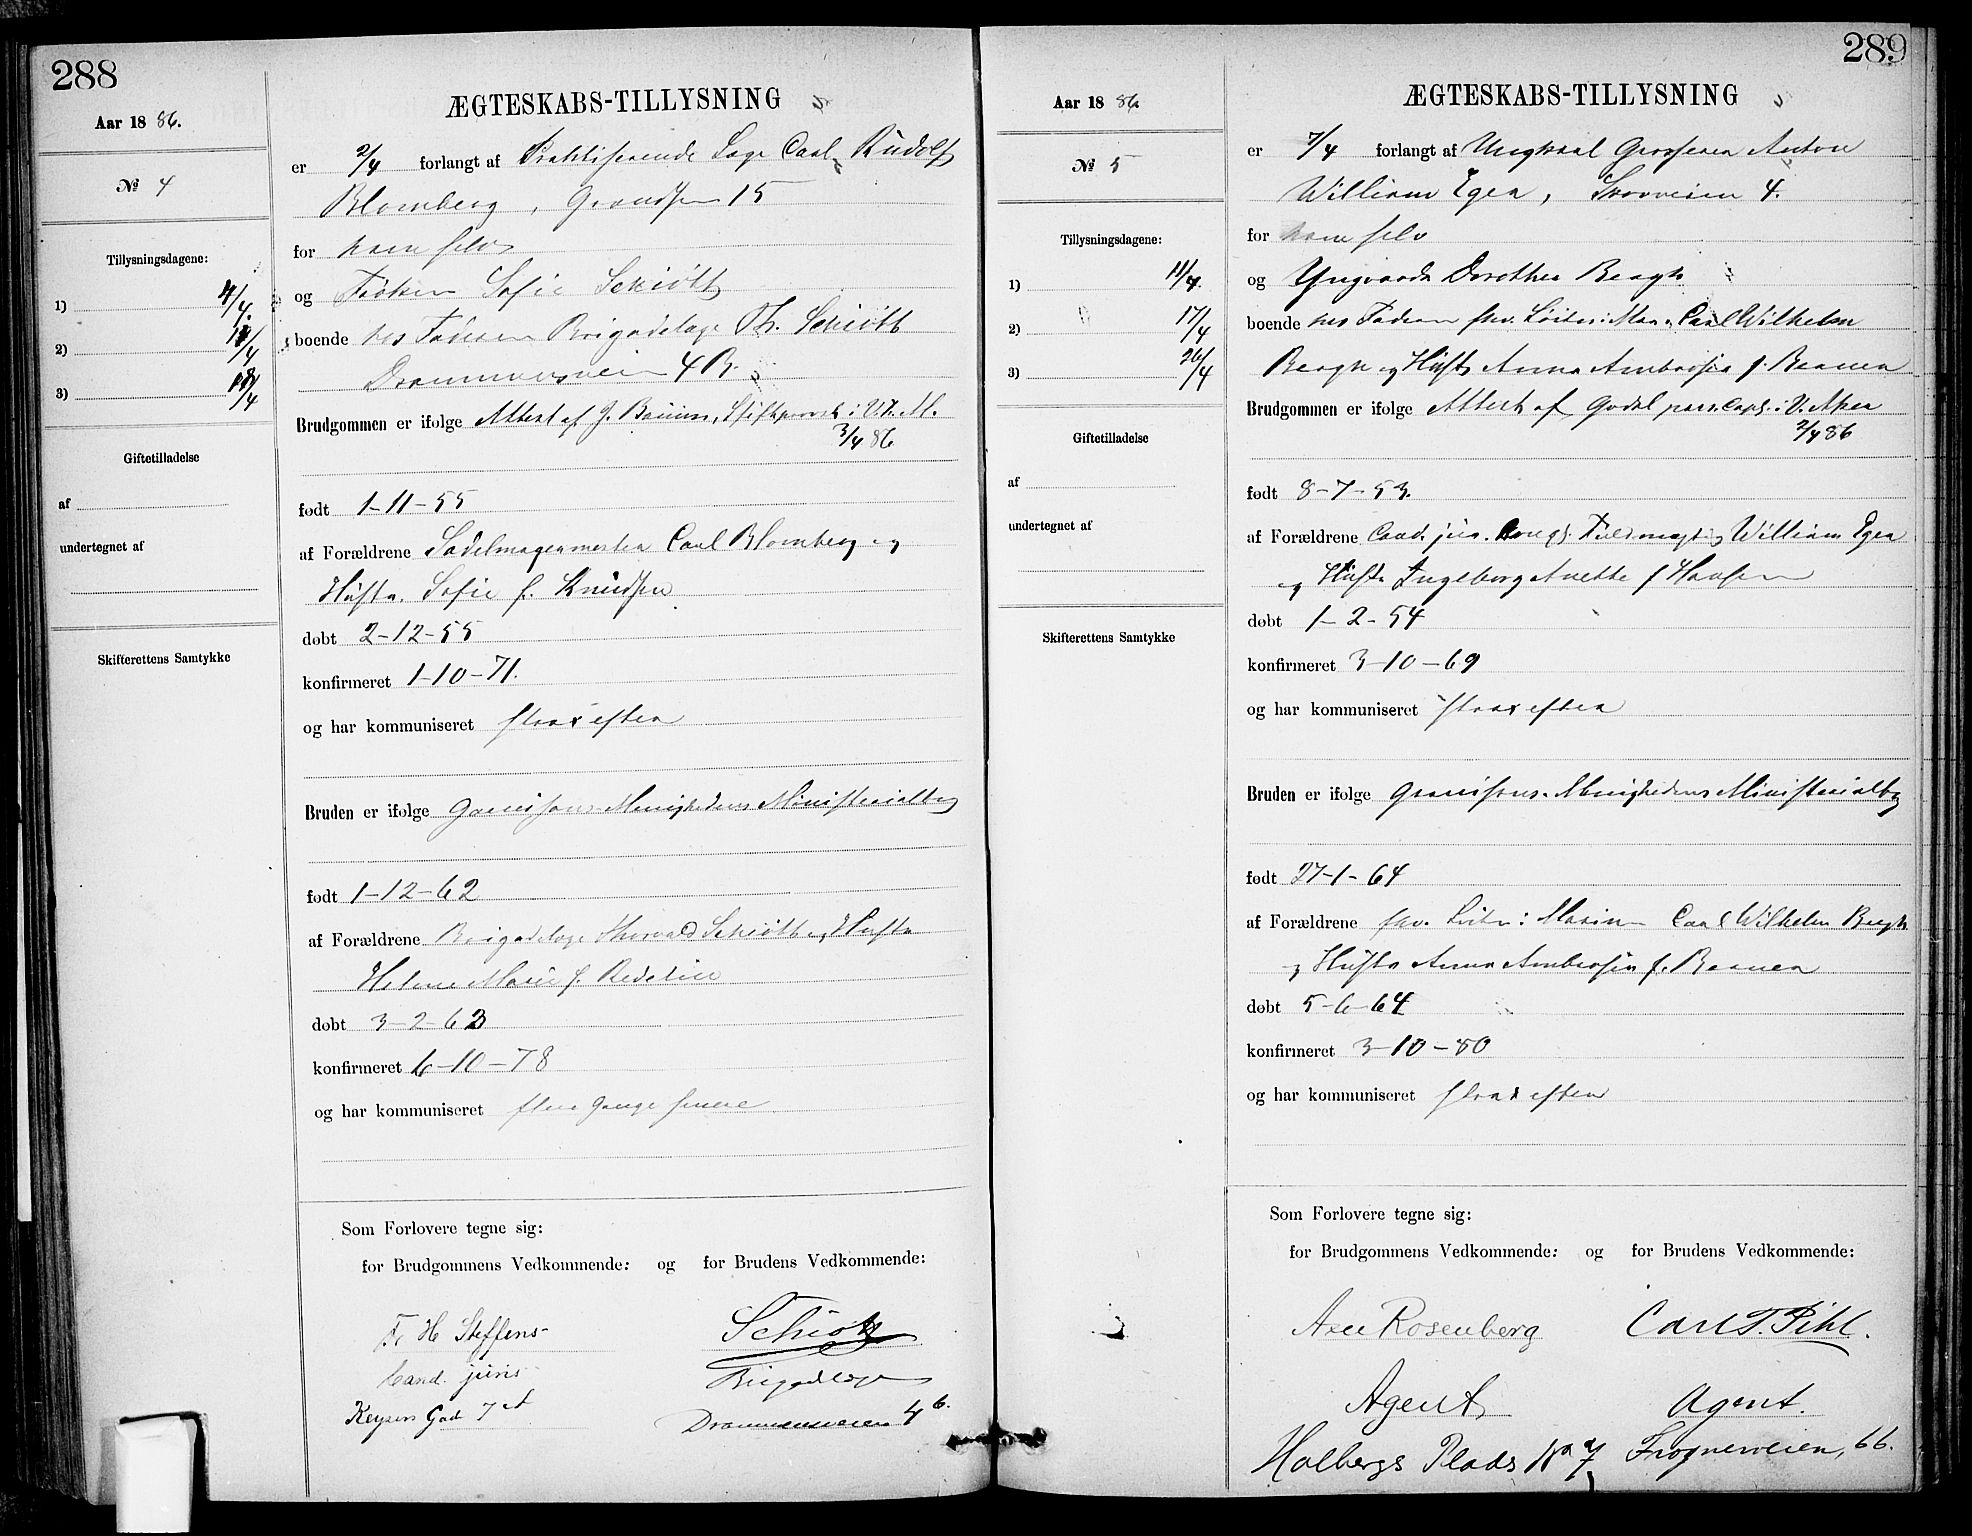 288
Aar 1886.
№ 4
Tillysningsdagene:
1) 4/4.
2) 11/4
3) 18/4
Giftetilladelse
af
undertegnet af
Skifterettens Samtykke
ÆGTESKABS-TILLYSNING
er 2/4 forlangt af Praktiserende Læge Carl Rudolf
Blomberg, Grændsen 15
for ham selv
og Frøken Sofie Schiøtt
boende hos Faderen Brigadelæge Th. Schiøtt
Drammensveien 4 B.
Brudgommen er ifølge Attest af J. Bruun, Stiftsprovst i V.F.M.
3/4 86.
født 1-11-55
af Forældrene Sadelmagermester Carl Blomberg og
Hustru Sofie f. Knudsen
døbt 2-12-55
konfirmeret 1-10-71.
og har kommuniseret strax efter
Bruden er ifølge Garnisons-Menighedens Ministerialbog
født 1-12-62
af Forældrene Brigadelæge Thorvald Schiøtt og Hustru
Helene Marie f.
døbt 3-2-63
konfirmeret 6-10-78
og har kommuniseret flere Gange senere
Som Forlovere tegne sig:
for Brudgommens Vedkommende: og for Brudens Vedkommende:
Fr H Steffens
Schiøtz
Cand. juris
Brigadelæge
Keysers Gad 7 A
Drammensveien 4 b.
289
Aar 1886.
№ 5
Tillysningsdagene:
1) 11/4.
2) 17/4
3) 26/4
Giftetilladelse
af
undertegnet af
Skifterettens Samtykke
ÆGTESKABS-TILLYSNING
er 7/4 forlangt af Ungkarl Grosserer Anton
William Eger, Skovveien 4.
for ham selv
og Yngvarda Dorothea Bergh
boende hos Faderen fhv. Løitn. i Mar. Carl Wilhelm
Bergh og Hustr Anna Ambrosia f. Beaner
Brudgommen er ifølge Attest af Godal pers. Cap. i V. Aker
2/4 86
født 8-7-53.
af Forældrene Cand. jur. Kongs. Fuldmægtig William Eger
og Hustr Ingeborg Anette f Hansen
døbt 1-2-54
konfirmeret 3-10-69
og har kommuniseret strax efter
Bruden er ifølge Garnisons-Menighedens Ministerialbog
født 27-1-64
af Forældrene fhv. Løitn. i Marin Carl Wilhelm Bergh
og Hustr Anna Ambrosia f. Beaner
døbt 5-6-64
konfirmeret 3-10-80
og har kommuniseret strax efter
Som Forlovere tegne sig:
for Brudgommens Vedkommende: og for Brudens Vedkommende:
Axel Rosenberg
Carl T. Pihl.
Agent
Agent.
Holbergs Plads No 7
Frogneveien, 66.